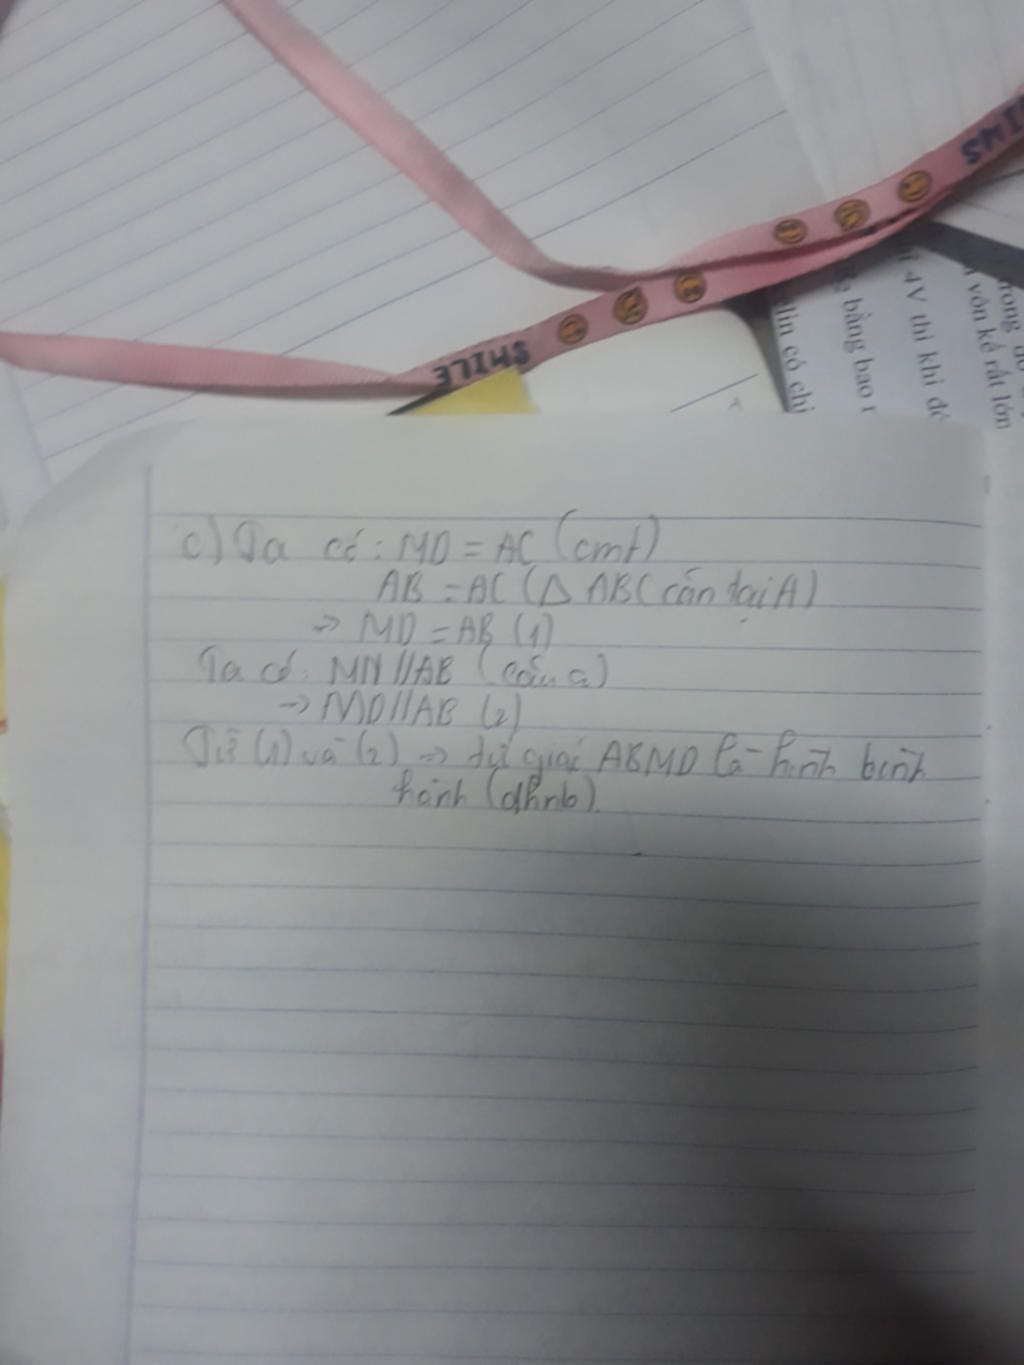 SMILE
SMI
4V thì khi đó
vôn kế rất lớn
bằng bao
có chỉ
c) Ta có: MD = AC (cmt)
AB = AC (Δ ABC cân tại A)
=> MD = AB (1)
Ta có: MN//AB (câu a)
-> MD//AB (2)
Từ (1) và (2) => tứ giác ABMD là hình bình
hành (dhnb).